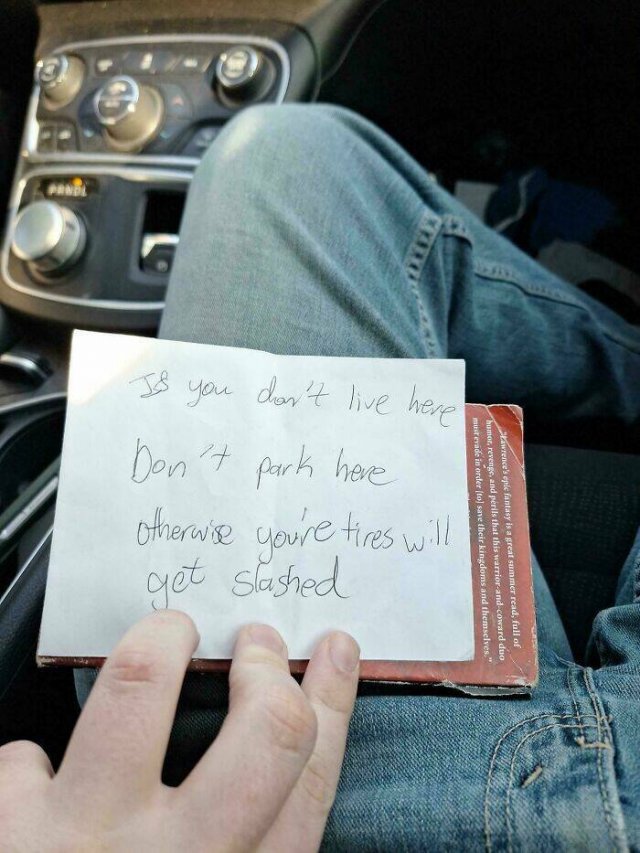 PRNDL
If you don't live here
Don't park here
otherwise you're tires will
get slashed
"Lawrence's epic fantasy is a great summer read, full of
humor, revenge, and perils that this warrior-and-coward duo
must evade in order [to] save their kingdoms and themselves."